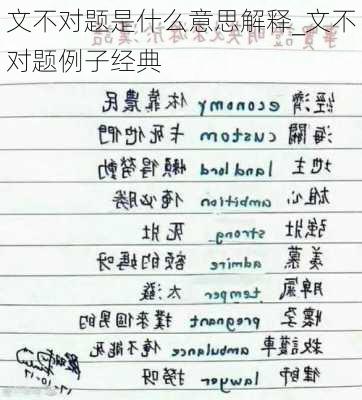 文不对题是什么意思解释_文不
对题例子经典
事實證明英文源於漢語
經濟 economy 依靠農民
海關 custom 卡死他們
地主 landlord 懶得勞動
雄心 ambition 俺必勝
強壯 strong 死壯
羨慕 admire 額的媽呀
脾氣 temper 太潑
懷孕 pregnant 撲來個男的
救護車 ambulance 俺不能死
律師 lawyer 撈呀